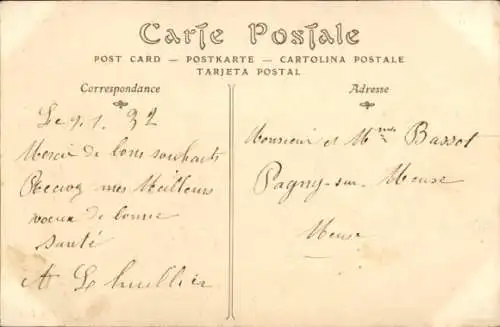 Carte Postale
POST CARD — POSTKARTE — CARTOLINA POSTALE
TARJETA POSTAL
Correspondance
Adresse
Le 9.1.32
Merci de bons souhaits
Recevez mes Meilleurs
voeux de bonne
santé
A Lhuillier
Monsieur et Mme Bassot
Pagny-sur-Meuse
Meuse